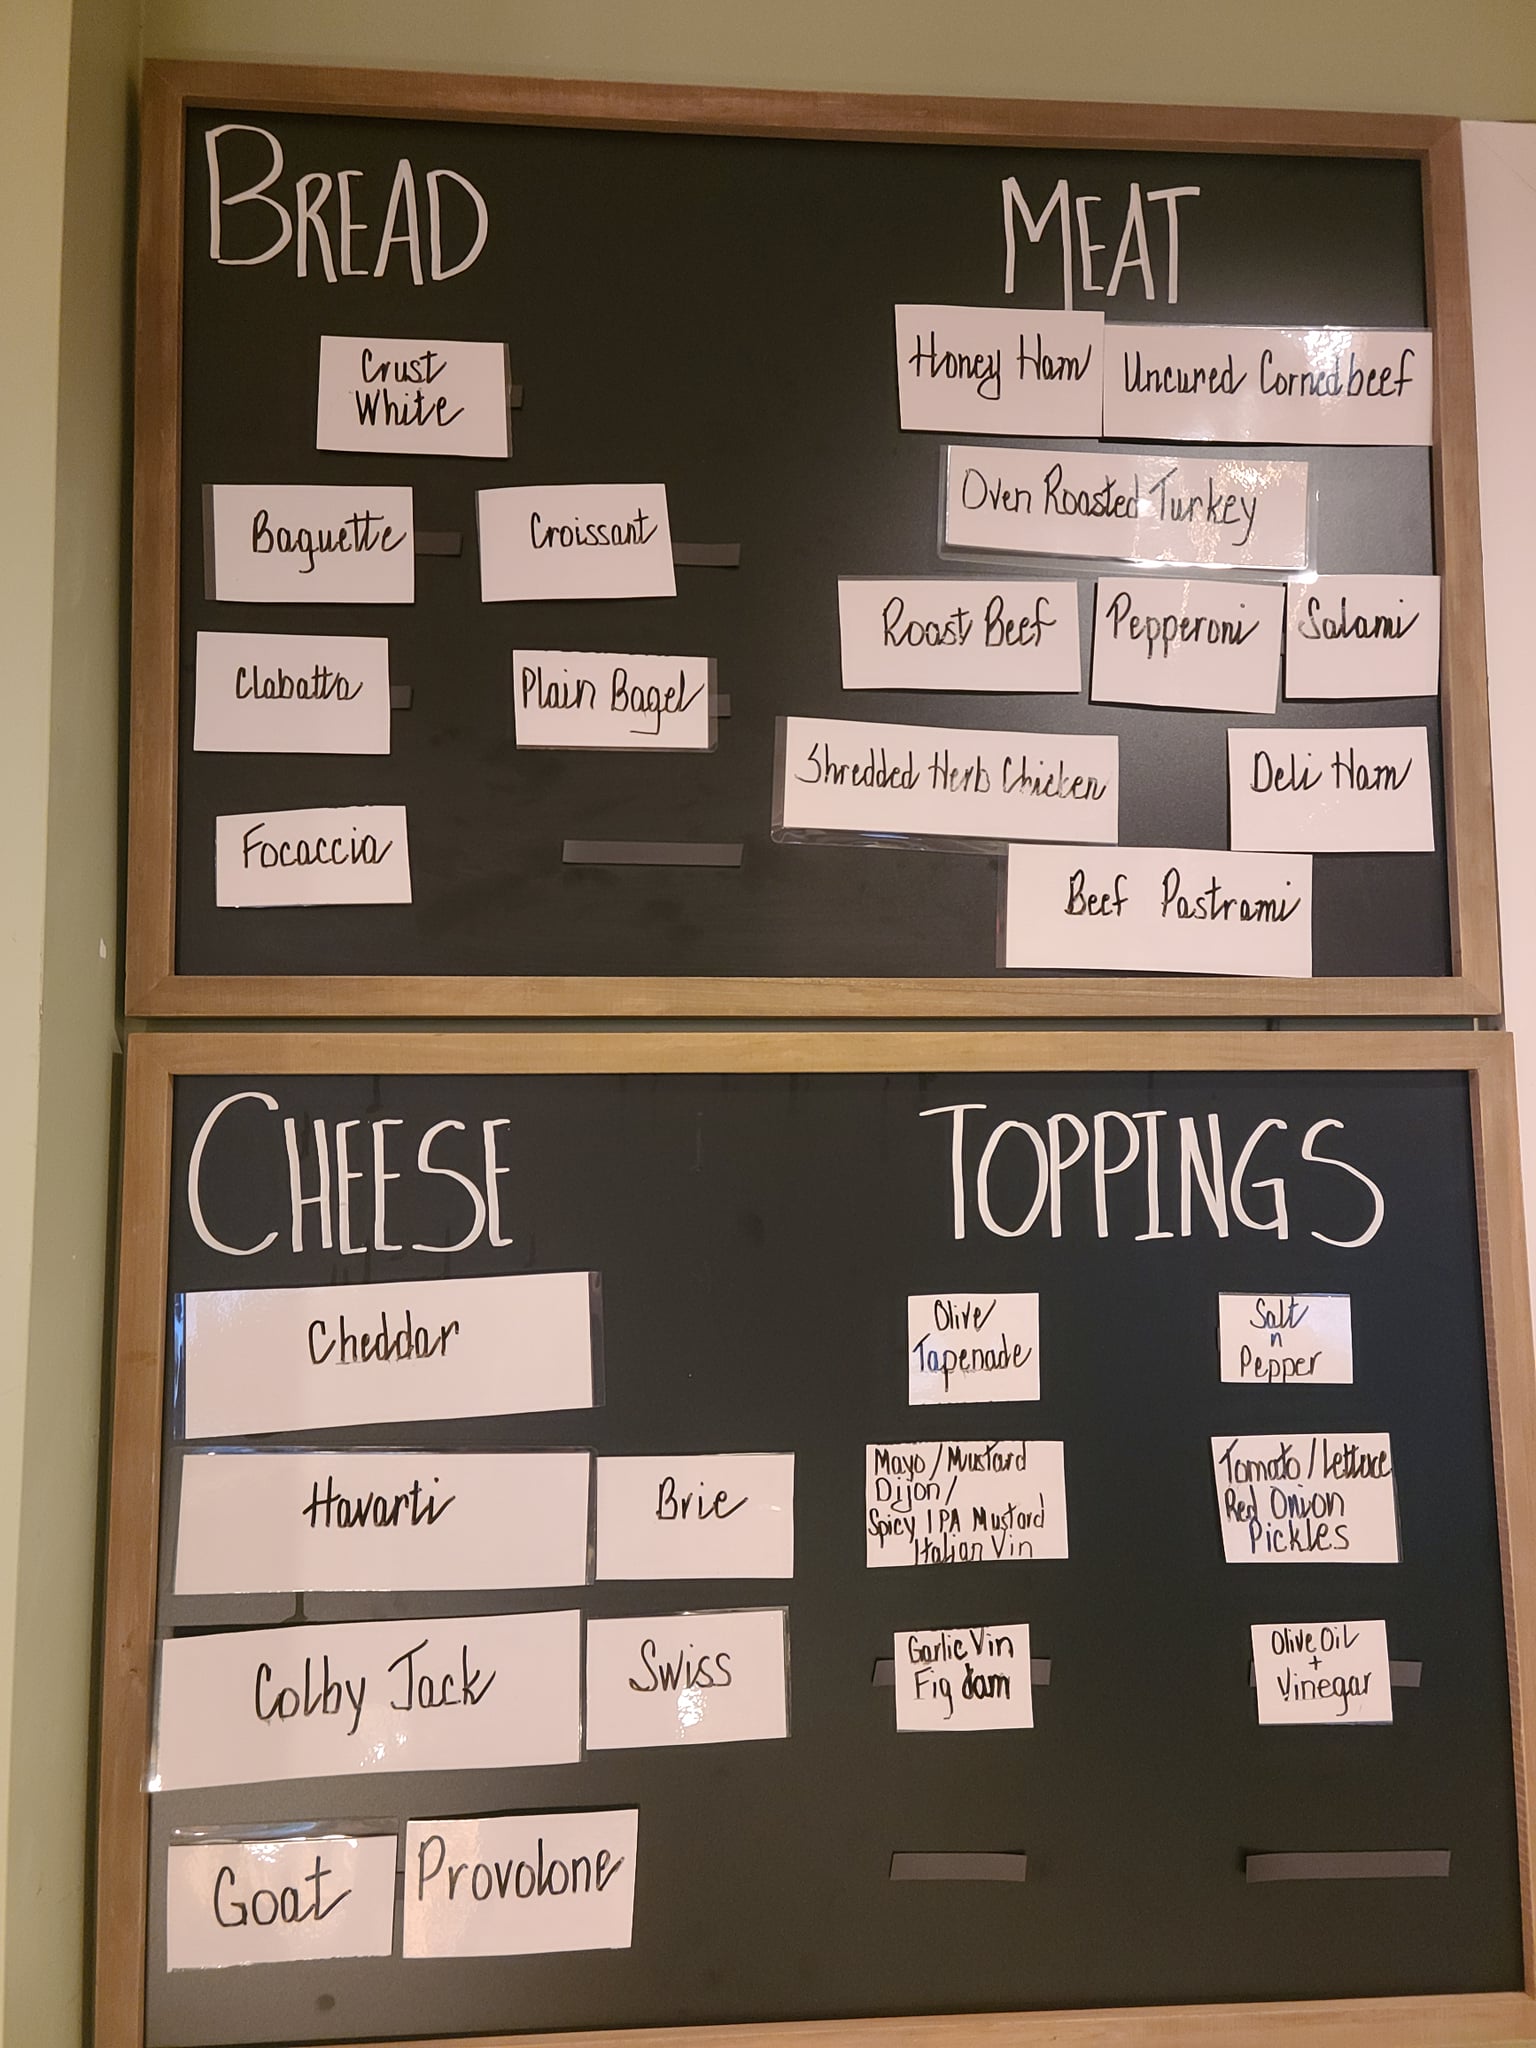 BREAD
Crust
White
Baguette
Croissant
Ciabatta
Plain Bagel
Focaccia
MEAT
Honey Ham
Uncured Cornedbeef
Oven Roasted Turkey
Roast Beef
Pepperoni
Salami
Shredded Herb Chicken
Deli Ham
Beef Pastrami
CHEESE
Cheddar
Havarti
Brie
Colby Jack
Swiss
Goat
Provolone
TOPPINGS
Olive
Tapenade
Salt
n
Pepper
Mayo/Mustard
Dijon/
Spicy IPA Mustard
Italian Vin
Tomato/Lettuce
Red Onion
Pickles
Garlic Vin
Fig Jam
Olive Oil
+
Vinegar